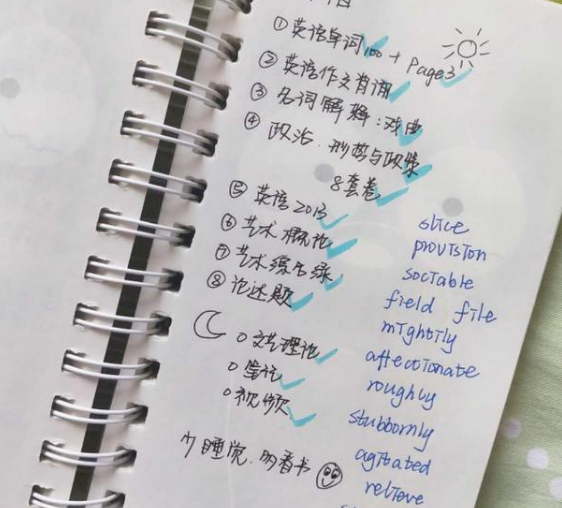 ①英语单词100 + Page3
②英语作文背诵
③名词解释:戏曲
④政治.形势与政策
8套卷
⑤英语2013
⑥艺术概论
⑦艺术综合
⑧论述题
○文艺理论
○笔记
○视频
少睡觉.多看书
slice
provision
sociable
field file
mightily
affectionate
roughly
stubbornly
agitated
relieve